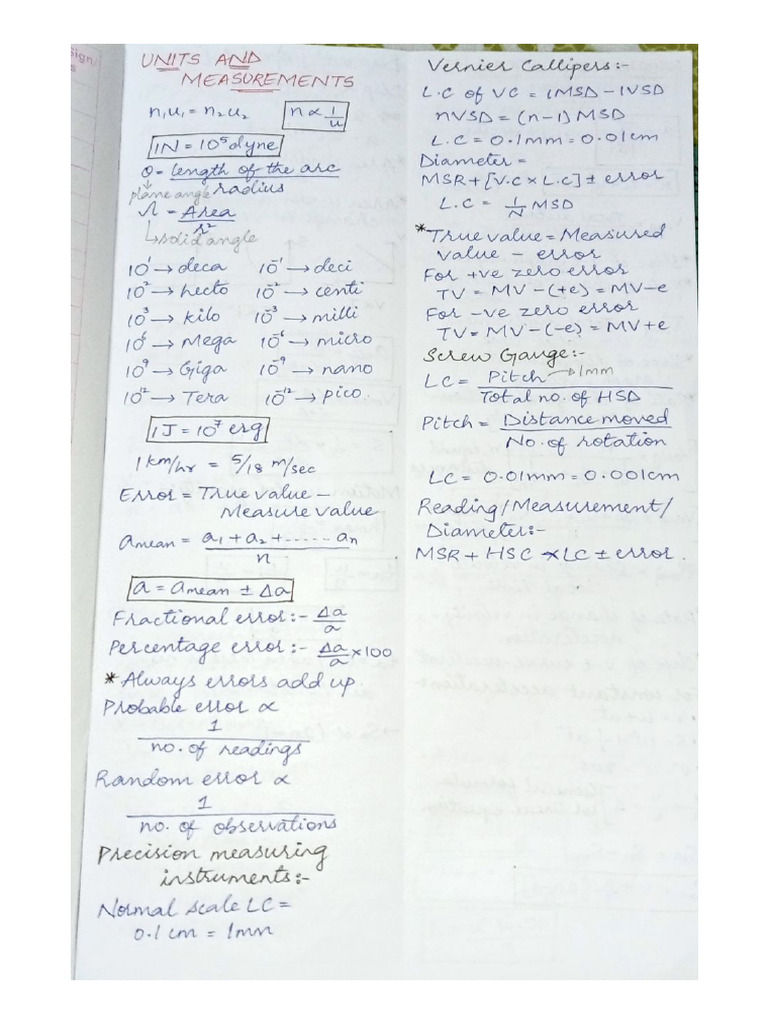 Sign
s
UNITS AND
MEASUREMENTS
n₁u₁ = n₂u₂ n ∝ 1/u
1N = 10⁵ dyne
θ = length of the arc / radius
plane angle
Ω = Area / r²
↳ solid angle
10¹ → deca 10⁻¹ → deci
10² → hecto 10⁻² → centi
10³ → kilo 10⁻³ → milli
10⁶ → Mega 10⁻⁶ → micro
10⁹ → Giga 10⁻⁹ → nano
10¹² → Tera 10⁻¹² → pico.
1J = 10⁷ erg
1 km/hr = 5/18 m/sec
Error = True value –
Measure value
amean = a₁ + a₂ + ...... an / n
a = amean ± Δa
Fractional error:- Δa/a
Percentage error:- Δa/a × 100
* Always errors add up.
Probable error ∝
1
no. of readings
Random error ∝
1
no. of observations
Precision measuring
instruments:-
Normal scale LC =
0.1 cm = 1mm
Vernier Callipers:-
L.C of VC = 1MSD – 1VSD
nVSD = (n–1) MSD
L.C = 0.1mm = 0.01cm
Diameter =
MSR + [V.C × L.C] ± error
L.C = 1/N MSD
* True value = Measured
value – error
For +ve zero error
TV = MV – (+e) = MV – e
For -ve zero error
TV = MV – (-e) = MV + e
Screw Gauge:-
LC = Pitch → 1mm / Total no. of HSD
Pitch = Distance moved / No. of rotation
LC = 0.01mm = 0.001cm
Reading/Measurement/
Diameter:-
MSR + HSC × LC ± error.